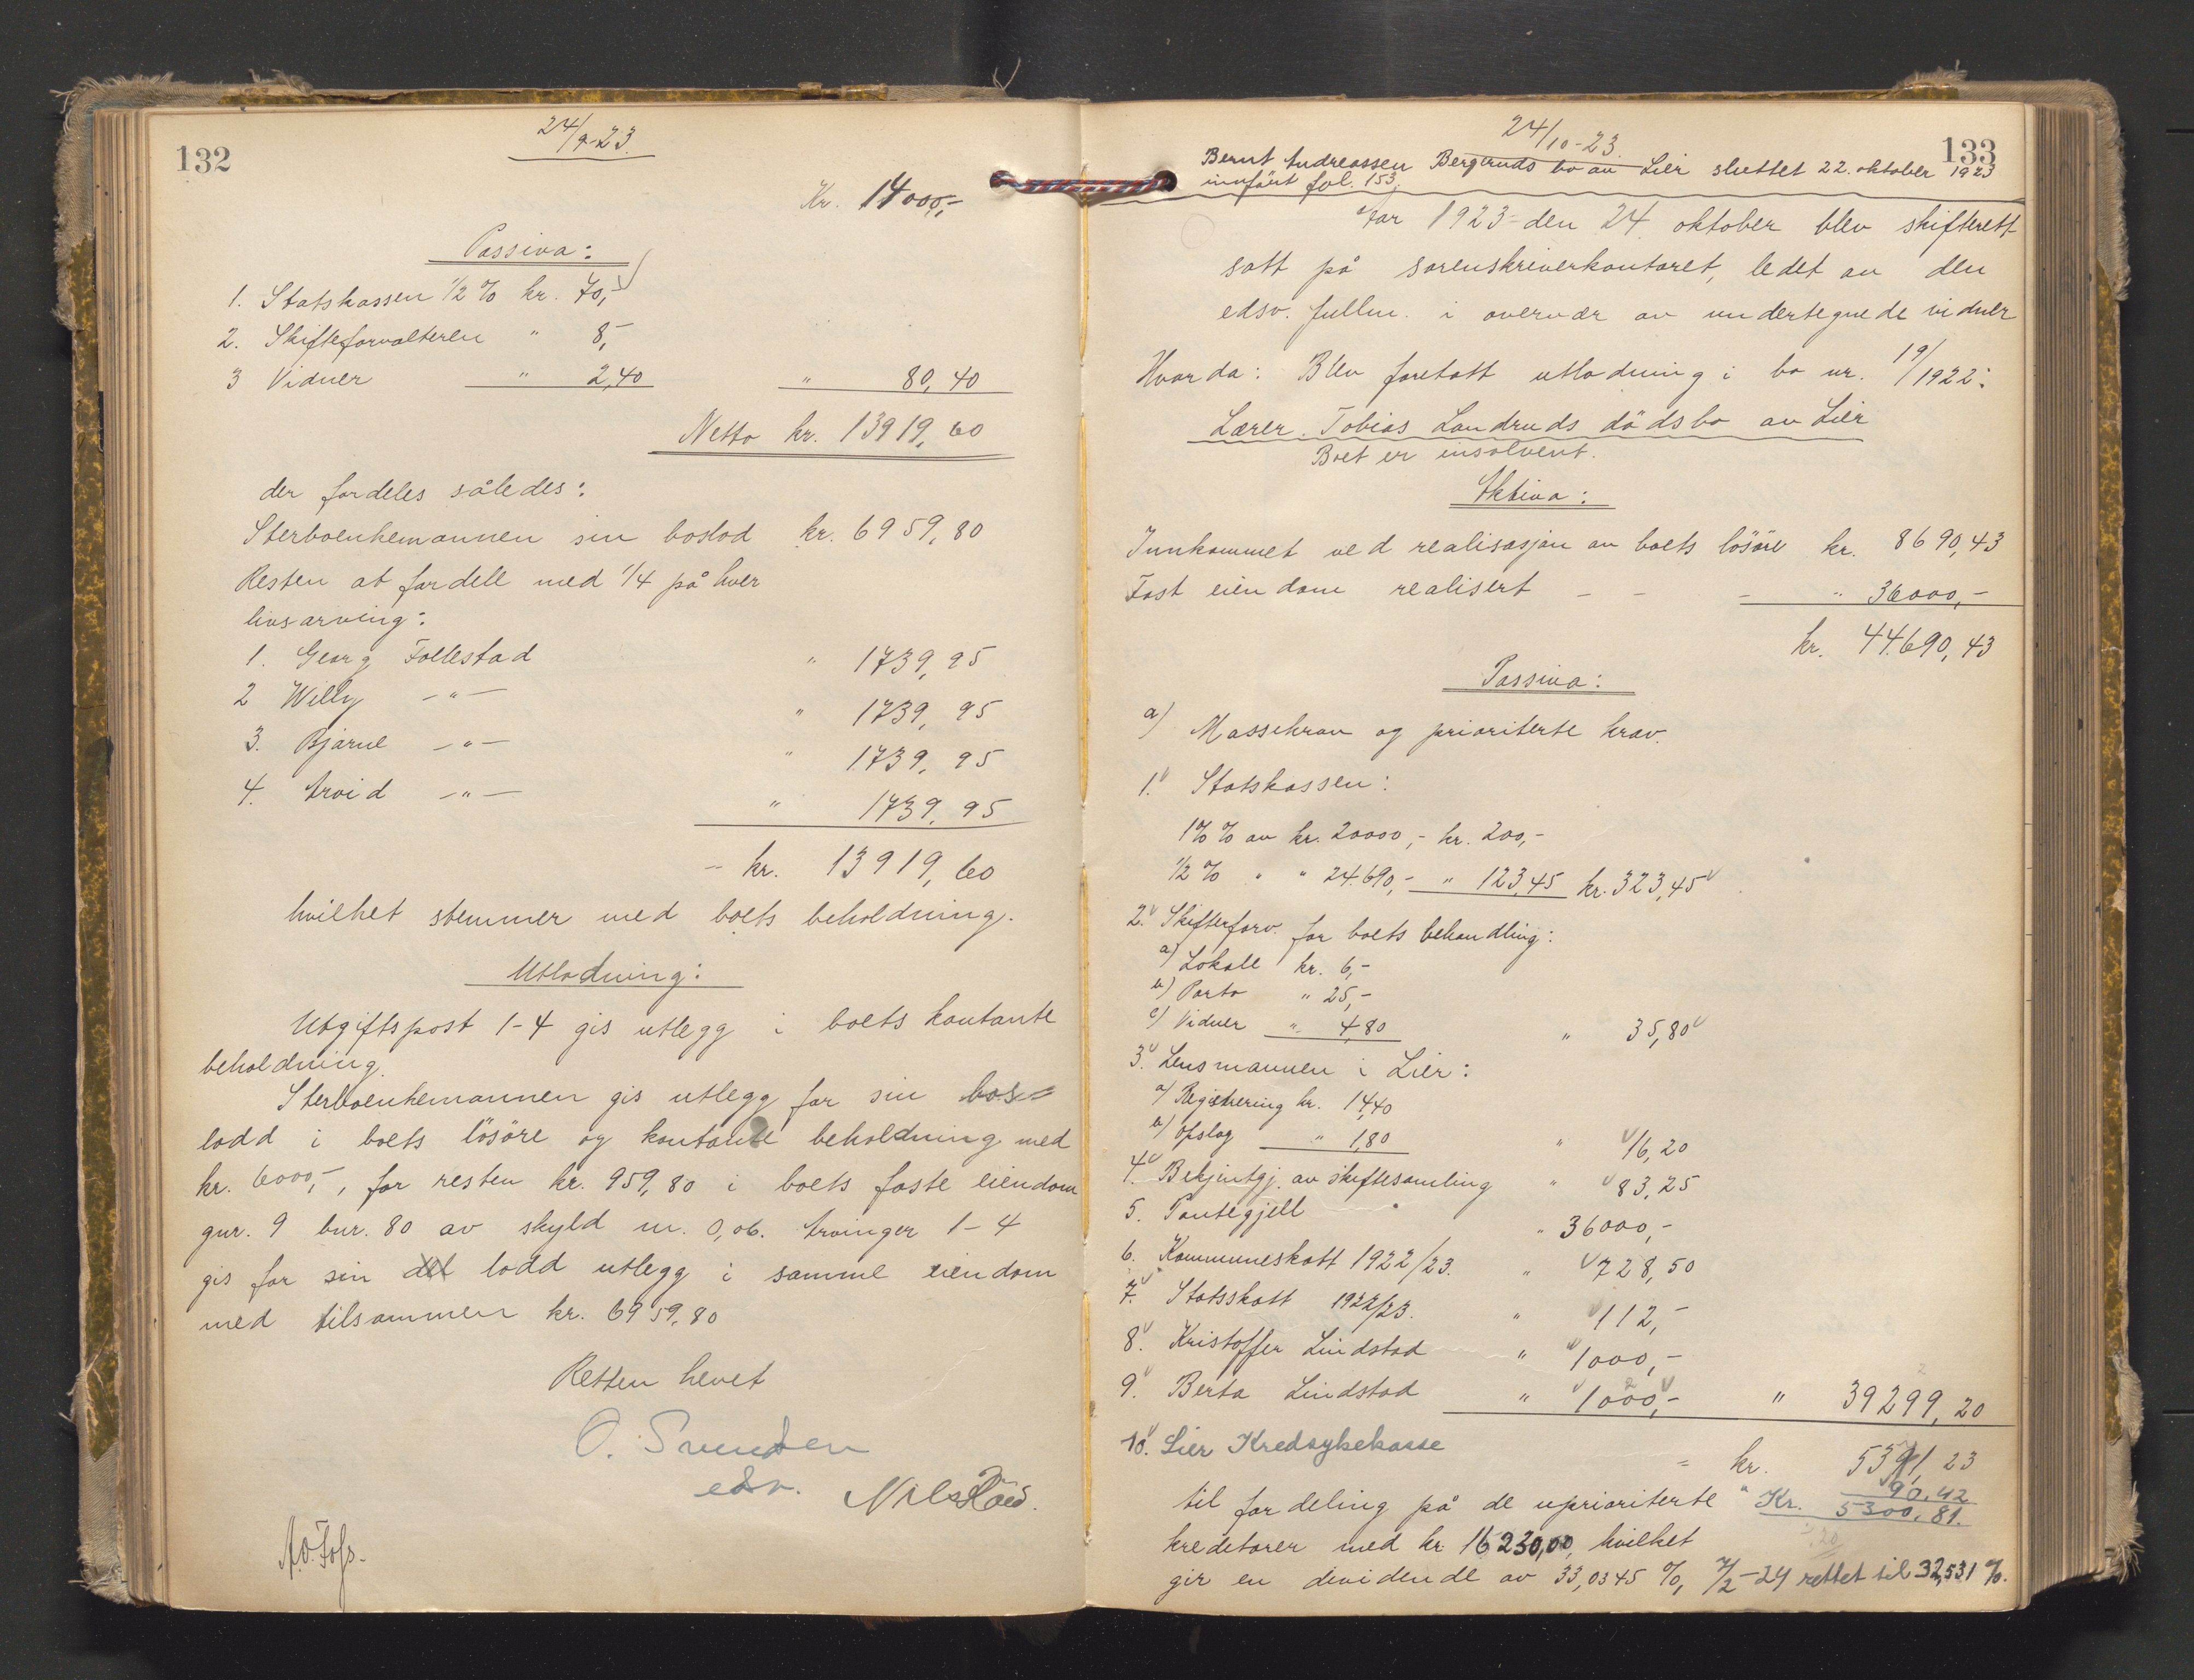 132
24/9-23.
Kr. 14000,-
Passiva:
1. Statskassen 1/2 % kr. 70,-
2. Skifteforvalteren " 8,-
3 Vidner " 2,40 " 80,40
Netto kr. 13919,60
der fordeles således:
Sterboenkemannen sin boslod kr. 6959,80
Resten at fordele med 1/4 på hver
livsarving:
1. Georg Follestad " 1739,95
2 Willy -"- " 1739,95
3. Bjarne -"- " 1739,95
4. Arvid -"- " 1739,95
- kr. 13919,60
hvilket stemmer med boets beholdning.
Utlodning:
Utgiftspost 1-4 gis utlegg i boets kontante
beholdning.
Sterboenkemannen gis utlegg for sin bos=
lodd i boets lösöre og kontante beholdning med
kr. 6000,-, for resten kr. 959,80 i boets faste eiendom
gnr. 9 bnr. 80 av skyld m. 0,06. Arvinger 1-4
gis for sin del lodd utlegg i samme eiendom
med tilsammen kr. 6959,80
Retten hevet
O. Svendsen
edsv.
133
24/10-23.
Bernt Andreassen Bergeruds bo av Lier sluttet 22. oktober 1923
innfört fol. 153.
Aar 1923 den 24. oktober blev skifterett
satt på sorenskriverkontoret, ledet av den
edsv. fullm. i overvær av undertegnede vidner
Hvorda: Blev foretatt utlodning i bo nr. 19/1922:
Lærer Tobias Landruds dödsbo av Lier
Boet er insolvent.
Aktiva:
Innkommet ved realisasjon av boets lösöre kr. 8690,43
Fast eiendom realisert - - - " 36000,-
kr. 44.690,43
Passiva:
a) Massekrav og prioriterte krav.
1. Statskassen:
1% % av kr. 20000,- kr. 200,-
1/2 % " " 24.690,- " 123,45 kr. 323,45
2. Skifteforv. for boets behandling:
a) Lokale kr. 6,-
b) Porto " 25,-
c) Vidner " 4,80 " 35,80
3. Lensmannen i Lier:
a) Registrering kr. 14,40
b) Opslag " 1,80 " 16,20
4. Bekjentgj. av skiftesamling " 83,25
5. Pantegjell " 36000,-
6. Kommuneskatt 1922/23. " 728,50
7. Statsskatt 1922/23. " 112,-
8. Kristoffer Lindstad " 1000,-
9. Berta Lindstad " 1000,- " 39299,20
10. Lier Kredsykekasse
= kr. 5391,23
90,42
til fordeling på de uprioriterte Kr. 5300,81.
kreditorer med kr. 16230,00, hvilket
gir en dividende av 33,0345 %, 7/2-24 rettet til 32,531 %.